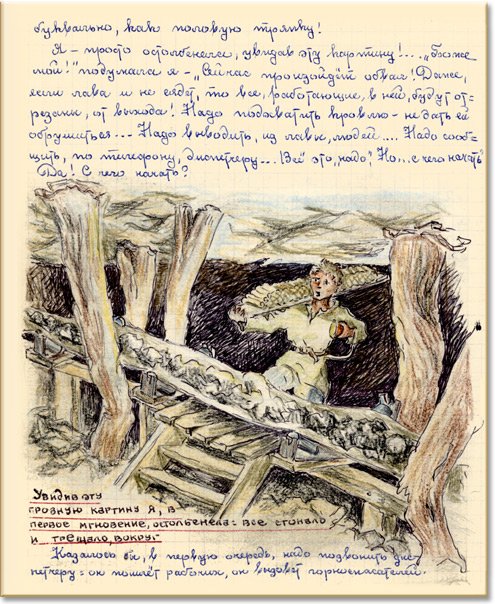 буквально, как половую тряпку!
Я - просто остолбенела, увидав эту картину!... „Боже
мой!" подумала я -, „Сейчас произойдёт обвал! Даже,
если лава и не сядет, то все, работающие, в ней, будут от=
резаны, от выхода! Надо подхватить кровлю - не дать ей
обрушиться... Надо выводить, из лавы, людей.... Надо сооб=
щить, по телефону, диспетчеру... Всё это, надо", Но,.. с чего начать?
Да! С чего начать?
Увидив эту
грозную картину я, в
первое мгновение, остолбенела: все стонало
и трещало, вокруг
Казалось бы, в первую очередь, надо позвонить дис=
петчеру: он пошлёт рабочих, он вызовет горноспасателей.